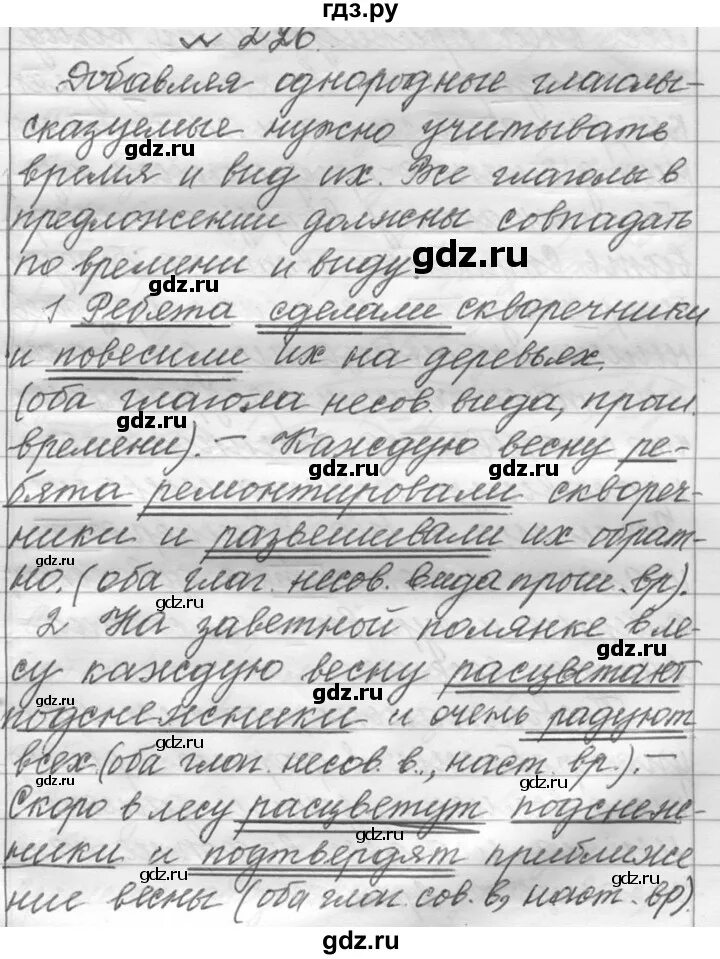 гдз.ру
№ 226.
Добавляя однородные глаголы-
сказуемые нужно учитывать
gdz.ru
время и вид их. Все глаголы в
предложении должны совпадать
по времени и виду.
gdz.ru
1 Ребята сделали скворечники
и повесили их на деревьях.
(оба глагола несов. вида, прош.
gdz.ru
времени). – Каждую весну ре-
gdz.ru gdz.ru
бята ремонтировали сквореч-
ники и развешивали их обрат-
gdz.ru
но. (оба глаг. несов. вида прош. вр).
gdz.ru
2 На заветной полянке в ле-
gdz.ru
су каждую весну расцветают
gdz.ru
подснежники и очень радуют
всех (оба глаг. несов. в., наст. вр.). –
gdz.ru gdz.ru
Скоро в лесу расцветут подснеж-
gdz.ru
ники и подтвердят приближе
gdz.ru
ние весны (оба глаг. сов. в, наст. вр).
gdz.ru
gdz.ru